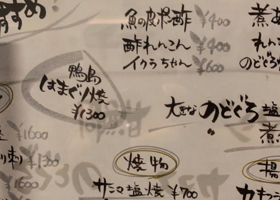 すすめ!
魚の皮ポン酢 ¥400
酢れんこん ¥400
イクラちゃん ¥600
煮
れん
のどぐろ
鴨島
はまぐり焼
¥1300
大きな のどぐろ 塩
煮
¥1600
刺 ¥1300
焼物
サンマ塩焼 ¥700
揚
カキフ